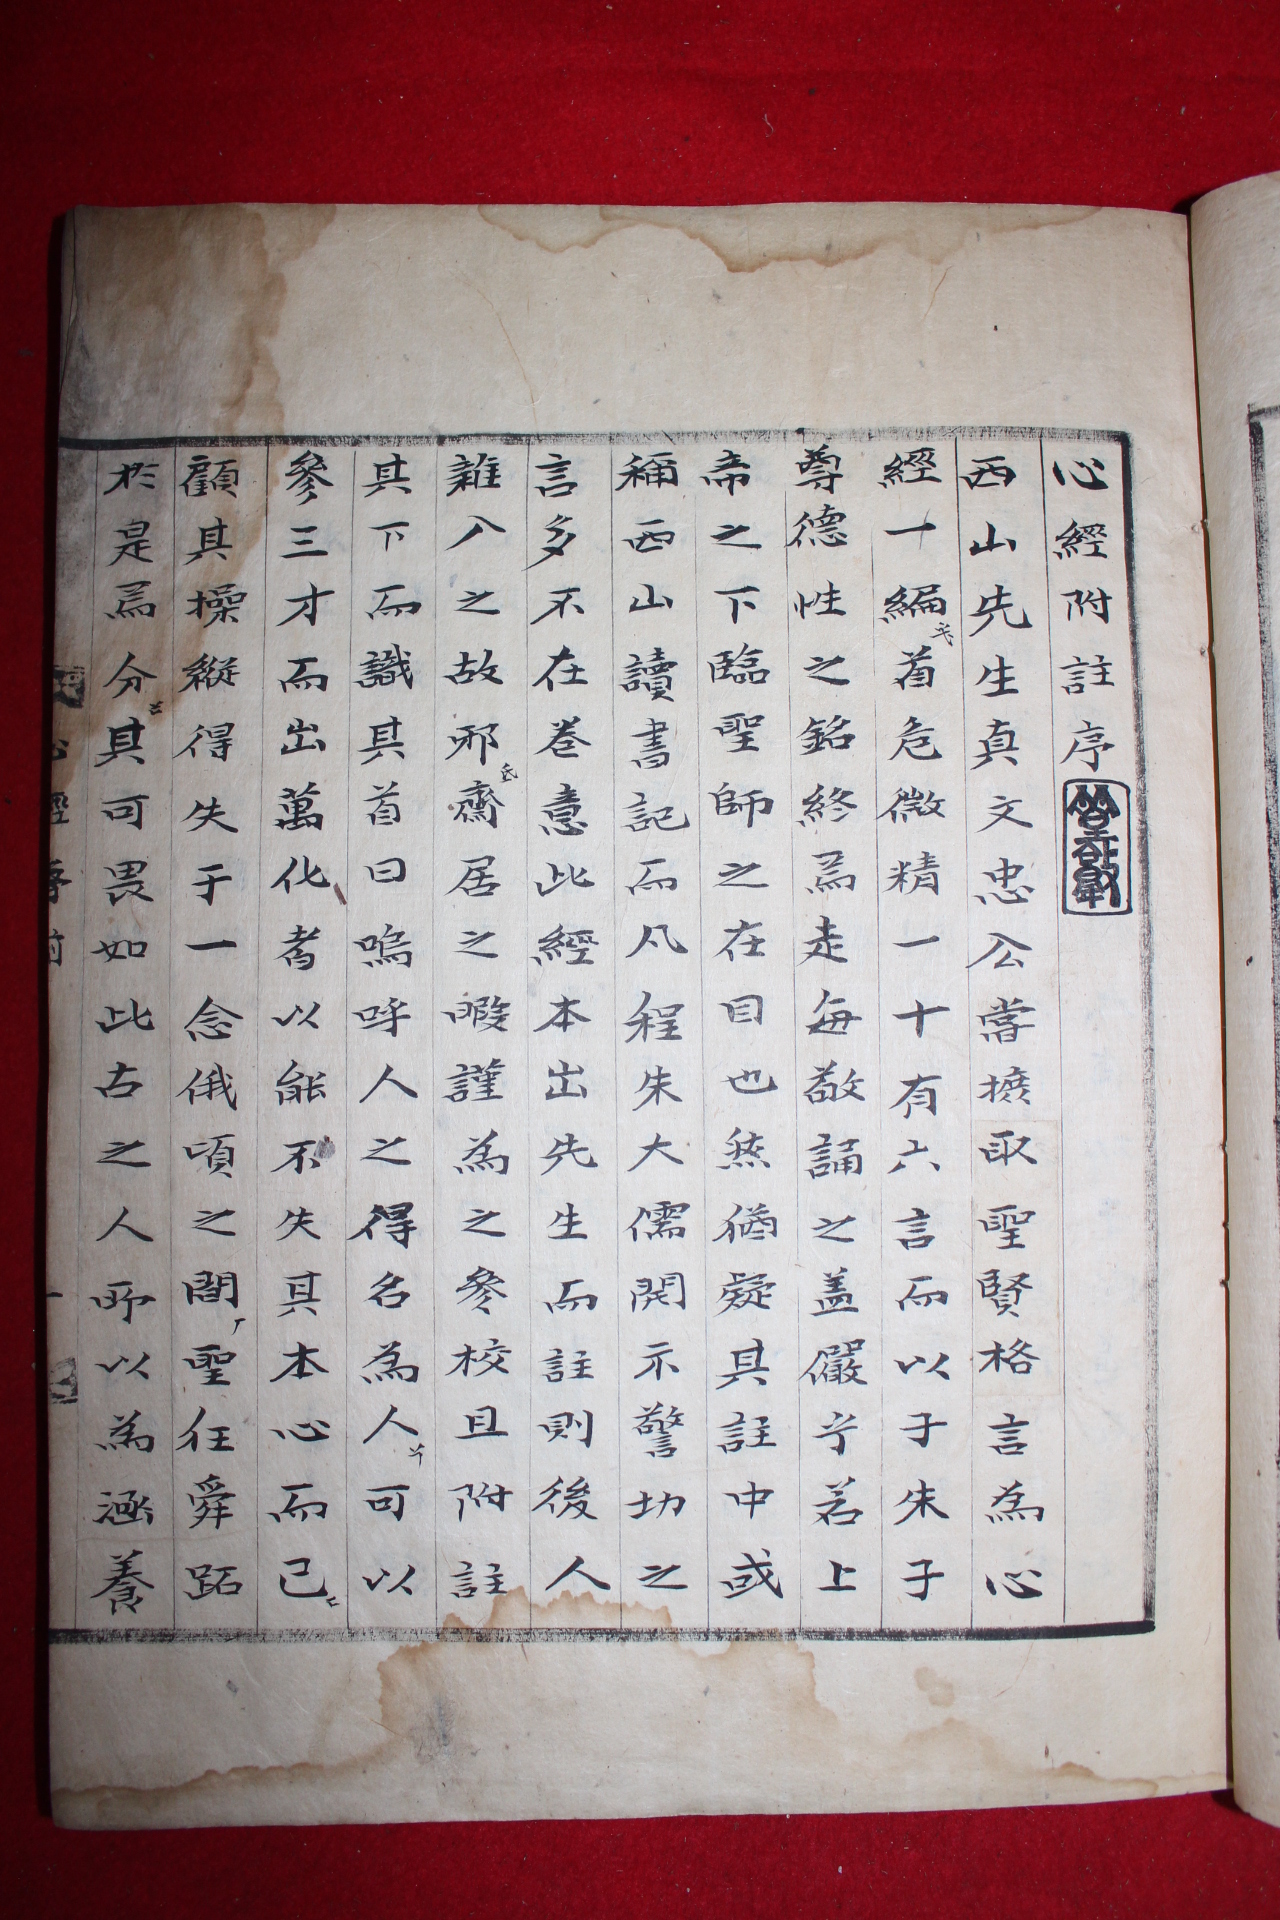 心經附註序
西山先生真文忠公嘗摭取聖賢格言為心
經一編首危微精一十有六言而以子朱子
尊德性之銘終焉走每敬誦之盖儼乎若上
帝之下臨聖師之在目也然猶疑其註中或
稱西山讀書記而凡程朱大儒開示警切之
言多不在卷意此經本出先生而註則後人
雜入之故邪齋居之暇謹為之參校且附註
其下而識其首曰嗚呼人之得名為人可以
參三才而出萬化者以能不失其本心而已
顧其操縱得失于一念俄頃之間聖狂舜跖
於是焉分其可畏如此古之人所以為涵養
心經序附